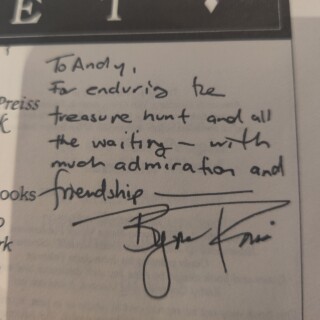 E T ♦
To Andy,
For enduring the
Preiss
treasure hunt and all
the waiting — with
much admiration and
ooks
friendship —
rk
Byron Preiss